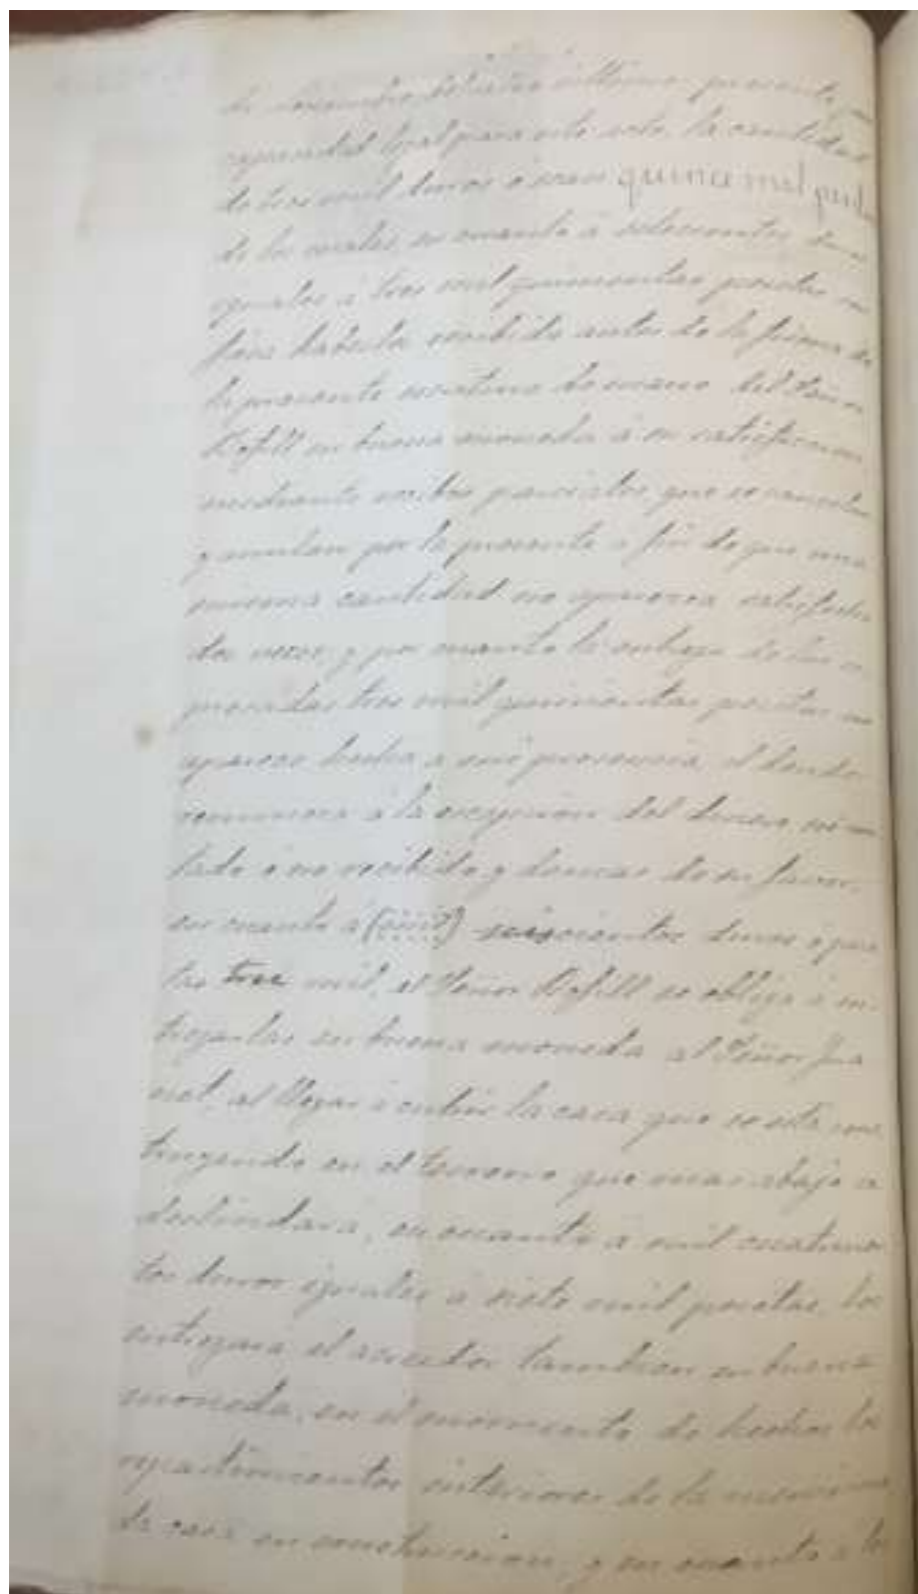 de Noviembre del año último, presente,
capacidad legal para este acto, la cantidad
de tres mil duros o sean quince mil
de los cuales, en cuanto a setecientos duros
iguales a tres mil quinientas pesetas
haberla recibido antes de la firma de
la presente escritura de mano del Señor
en buena moneda a su satisfaccion
mediante recibos parciales, que se cancelan
y anulan por la presente a fin de que una
misma cantidad no aparezca satisfecha
dos veces y por cuanto la entrega de las
tres mil quinientas pesetas no
aparece hecha a mi presencia, el
renuncia a la excepcion del dinero no
tado o no recibido y demas de su favor.
en cuanto a seiscientos duros o
tas tres mil, el Señor se obliga a en
tregarlas en buena moneda al Señor
al llegar a cubrir la casa que se está cons
truyendo en el terreno que mas abajo se
deslindará, en cuanto a mil cuatrocien
tos duros iguales a siete mil pesetas, los
entregará el acreedor tambien en buena
moneda, en el momento de hechos los
repartimientos interiores de la menciona
da casa en construccion, y en cuanto a los